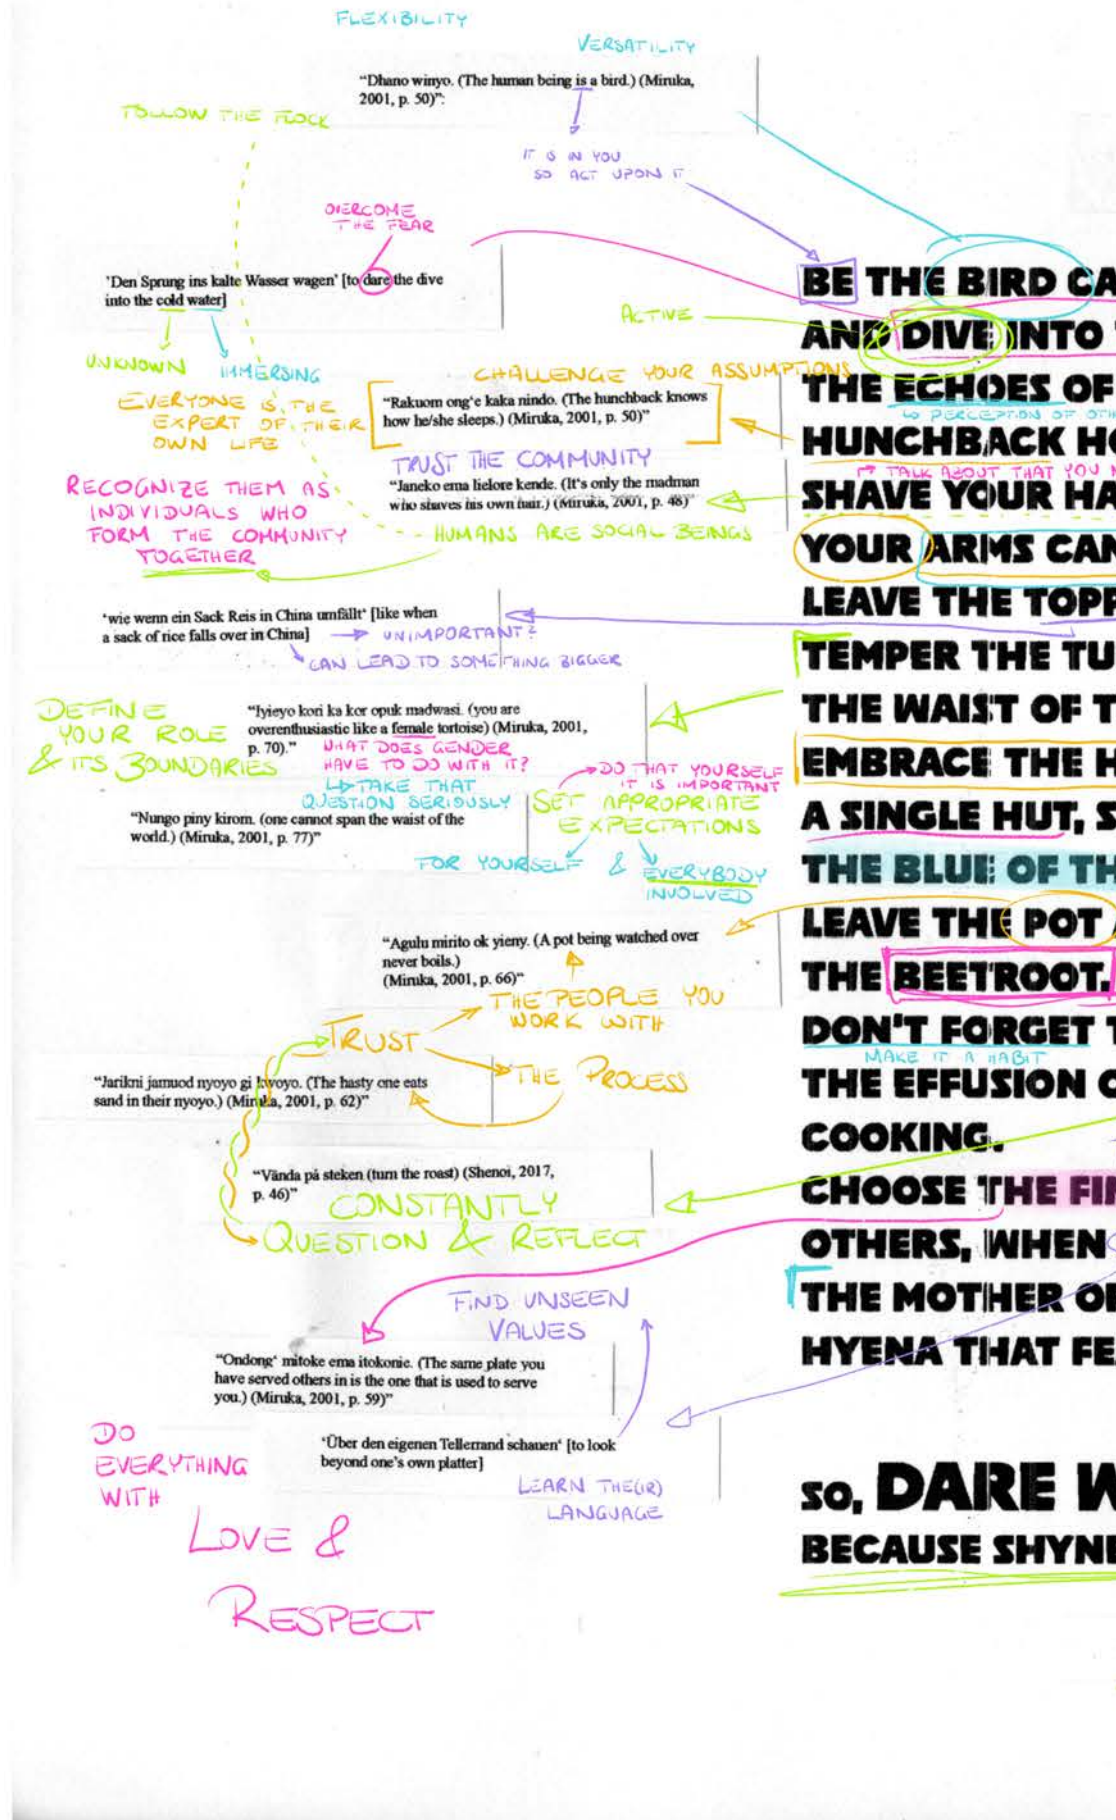 FLEXIBILITY
VERSATILITY
"Dhano winyo. (The human being is a bird.) (Miruka,
2001, p. 50)":
FOLLOW THE FLOCK
IT IS IN YOU
SO ACT UPON IT
OVERCOME
THE FEAR
'Den Sprung ins kalte Wasser wagen' [to dare the dive
into the cold water]
UNKNOWN
IMMERSING
ACTIVE
CHALLENGE YOUR ASSUMPTIONS
EVERYONE IS THE
EXPERT OF THEIR
OWN LIFE
"Rakuom ong'e kaka nindo. (The hunchback knows
how he/she sleeps.) (Miruka, 2001, p. 50)"
TRUST THE COMMUNITY
"Janeko ema lielore kende. (It's only the madman
who shaves his own hair.) (Miruka, 2001, p. 48)"
RECOGNIZE THEM AS
INDIVIDUALS WHO
FORM THE COMMUNITY
TOGETHER
HUMANS ARE SOCIAL BEINGS
'wie wenn ein Sack Reis in China umfällt' [like when
a sack of rice falls over in China]
UNIMPORTANT?
CAN LEAD TO SOMETHING BIGGER
DEFINE
YOUR ROLE
& ITS BOUNDARIES
"Iyieyo kori ka kor opuk madwasi. (you are
overenthusiastic like a female tortoise) (Miruka, 2001,
p. 70)."
WHAT DOES GENDER
HAVE TO DO WITH IT?
↳ TAKE THAT
QUESTION SERIOUSLY
DO THAT YOURSELF
IT IS IMPORTANT
SET APPROPRIATE
EXPECTATIONS
"Nungo piny kirom. (one cannot span the waist of the
world.) (Miruka, 2001, p. 77)"
FOR YOURSELF & EVERYBODY
INVOLVED
"Agulu mirito ok yieny. (A pot being watched over
never boils.)
(Miruka, 2001, p. 66)"
THE PEOPLE YOU
WORK WITH
TRUST
THE PROCESS
"Jarikni jamuod nyoyo gi kwoyo. (The hasty one eats
sand in their nyoyo.) (Miruka, 2001, p. 62)"
"Vända på steken (turn the roast) (Shenoi, 2017,
p. 46)"
CONSTANTLY
QUESTION & REFLECT
FIND UNSEEN
VALUES
"Ondong' mitoke ema itokonie. (The same plate you
have served others in is the one that is used to serve
you.) (Miruka, 2001, p. 59)"
'Über den eigenen Tellerrand schauen' [to look
beyond one's own platter]
LEARN THE(IR)
LANGUAGE
DO
EVERYTHING
WITH
LOVE &
RESPECT
BE THE BIRD CA
AND DIVE INTO
THE ECHOES OF
↳ PERCEPTION OF OTH
HUNCHBACK HO
TALK ABOUT THAT YOU N
SHAVE YOUR HA
YOUR ARMS CAN
LEAVE THE TOPP
TEMPER THE TU
THE WAIST OF T
EMBRACE THE H
A SINGLE HUT, S
THE BLUE OF TH
LEAVE THE POT
THE BEETROOT.
DON'T FORGET T
MAKE IT A HABIT
THE EFFUSION O
COOKING.
CHOOSE THE FI
OTHERS, WHEN
THE MOTHER O
HYENA THAT FE
so, DARE W
BECAUSE SHYNE